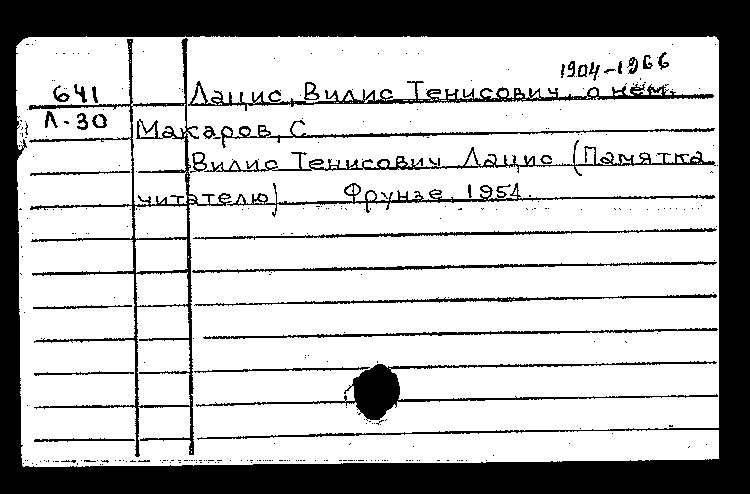 1904-1966
641 Лацис, Вилис Тенисович, о нем.
Л-30 Макаров, С
Вилис Тенисович Лацис (Памятка
читателю). Фрунзе, 1954.